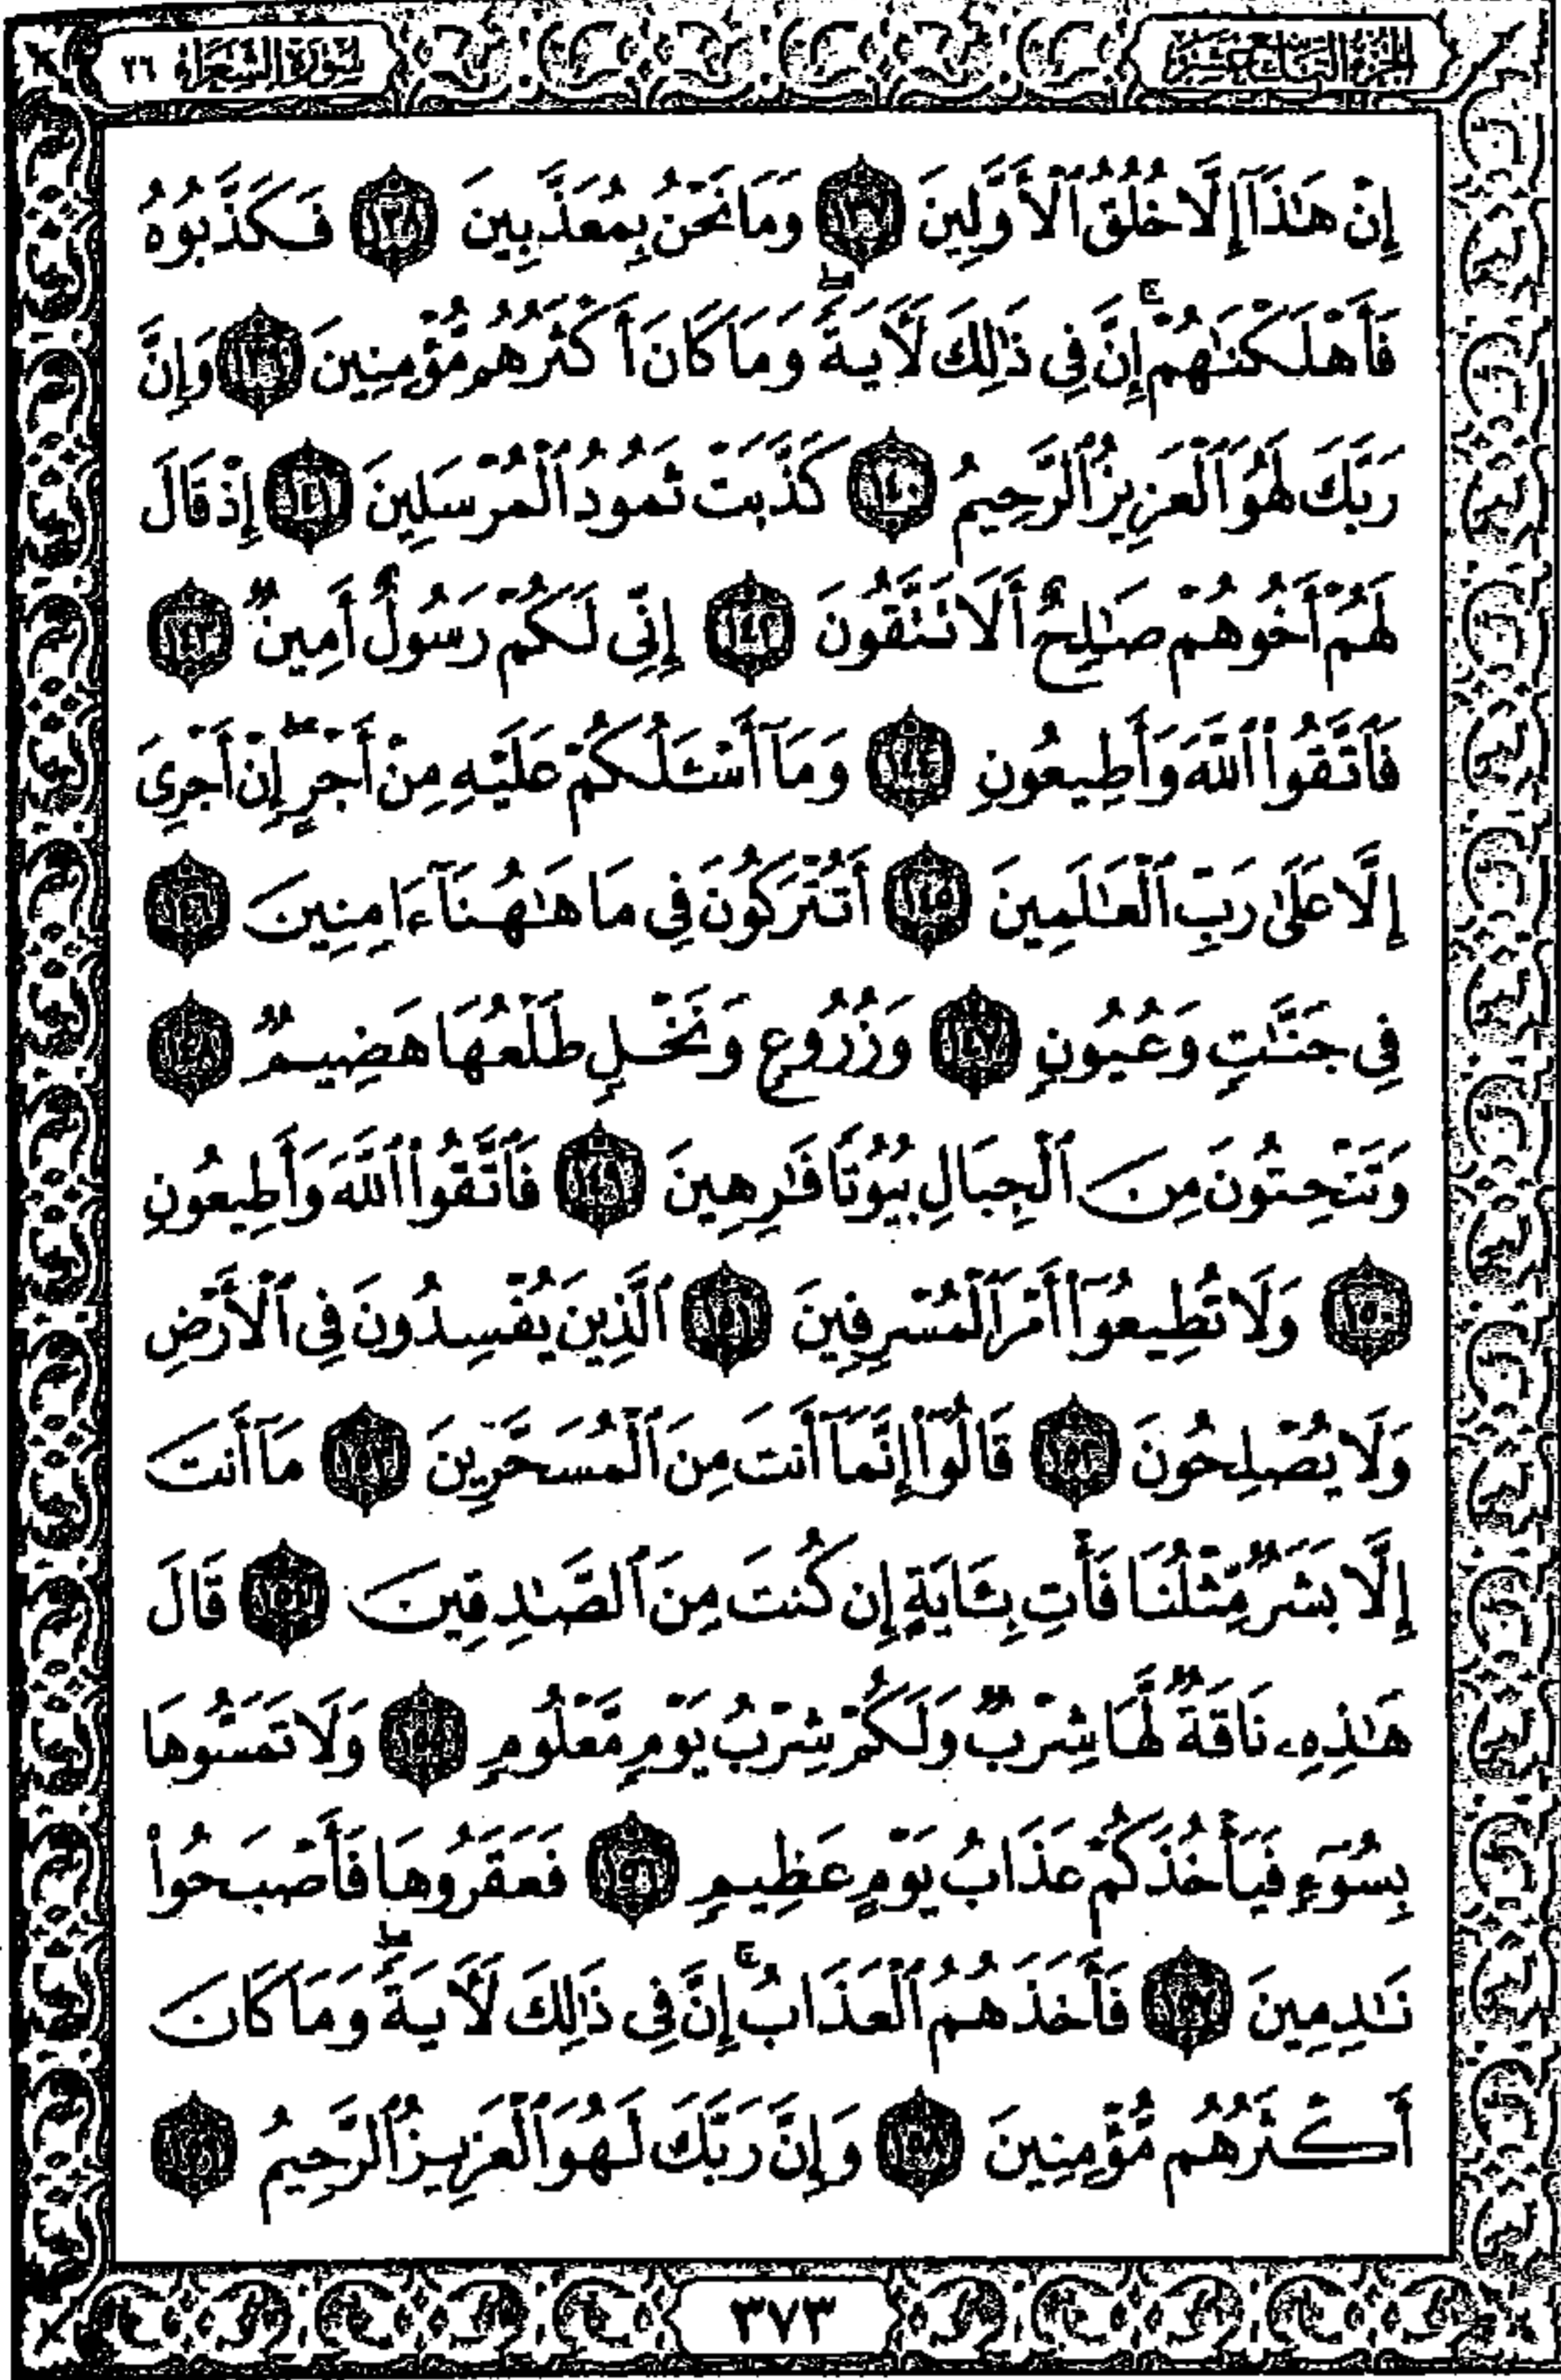 الجزء التاسع عشر
سورة الشعراء ٢٦
إِنْ هَٰذَآ إِلَّا خُلُقُ ٱلْأَوَّلِينَ ١٣٧ وَمَا نَحْنُ بِمُعَذَّبِينَ ١٣٨ فَكَذَّبُوهُ
فَأَهْلَكْنَٰهُمْ ۚ إِنَّ فِى ذَٰلِكَ لَءَايَةً ۖ وَمَا كَانَ أَكْثَرُهُم مُّؤْمِنِينَ ١٣٩ وَإِنَّ
رَبَّكَ لَهُوَ ٱلْعَزِيزُ ٱلرَّحِيمُ ١٤٠ كَذَّبَتْ ثَمُودُ ٱلْمُرْسَلِينَ ١٤١ إِذْ قَالَ
لَهُمْ أَخُوهُمْ صَٰلِحٌ أَلَا تَتَّقُونَ ١٤٢ إِنِّى لَكُمْ رَسُولٌ أَمِينٌ ١٤٣
فَٱتَّقُوا۟ ٱللَّهَ وَأَطِيعُونِ ١٤٤ وَمَآ أَسْـَٔلُكُمْ عَلَيْهِ مِنْ أَجْرٍ ۖ إِنْ أَجْرِىَ
إِلَّا عَلَىٰ رَبِّ ٱلْعَٰلَمِينَ ١٤٥ أَتُتْرَكُونَ فِى مَا هَٰهُنَآ ءَامِنِينَ ١٤٦
فِى جَنَّٰتٍ وَعُيُونٍ ١٤٧ وَزُرُوعٍ وَنَخْلٍ طَلْعُهَا هَضِيمٌ ١٤٨
وَتَنْحِتُونَ مِنَ ٱلْجِبَالِ بُيُوتًا فَٰرِهِينَ ١٤٩ فَٱتَّقُوا۟ ٱللَّهَ وَأَطِيعُونِ
١٥٠ وَلَا تُطِيعُوٓا۟ أَمْرَ ٱلْمُسْرِفِينَ ١٥١ ٱلَّذِينَ يُفْسِدُونَ فِى ٱلْأَرْضِ
وَلَا يُصْلِحُونَ ١٥٢ قَالُوٓا۟ إِنَّمَآ أَنتَ مِنَ ٱلْمُسَحَّرِينَ ١٥٣ مَآ أَنتَ
إِلَّا بَشَرٌ مِّثْلُنَا فَأْتِ بِـَٔايَةٍ إِن كُنتَ مِنَ ٱلصَّٰدِقِينَ ١٥٤ قَالَ
هَٰذِهِۦ نَاقَةٌ لَّهَا شِرْبٌ وَلَكُمْ شِرْبُ يَوْمٍ مَّعْلُومٍ ١٥٥ وَلَا تَمَسُّوهَا
بِسُوٓءٍ فَيَأْخُذَكُمْ عَذَابُ يَوْمٍ عَظِيمٍ ١٥٦ فَعَقَرُوهَا فَأَصْبَحُوا۟
نَٰدِمِينَ ١٥٧ فَأَخَذَهُمُ ٱلْعَذَابُ ۚ إِنَّ فِى ذَٰلِكَ لَءَايَةً ۖ وَمَا كَانَ
أَكْثَرُهُم مُّؤْمِنِينَ ١٥٨ وَإِنَّ رَبَّكَ لَهُوَ ٱلْعَزِيزُ ٱلرَّحِيمُ ١٥٩
٣٧٣